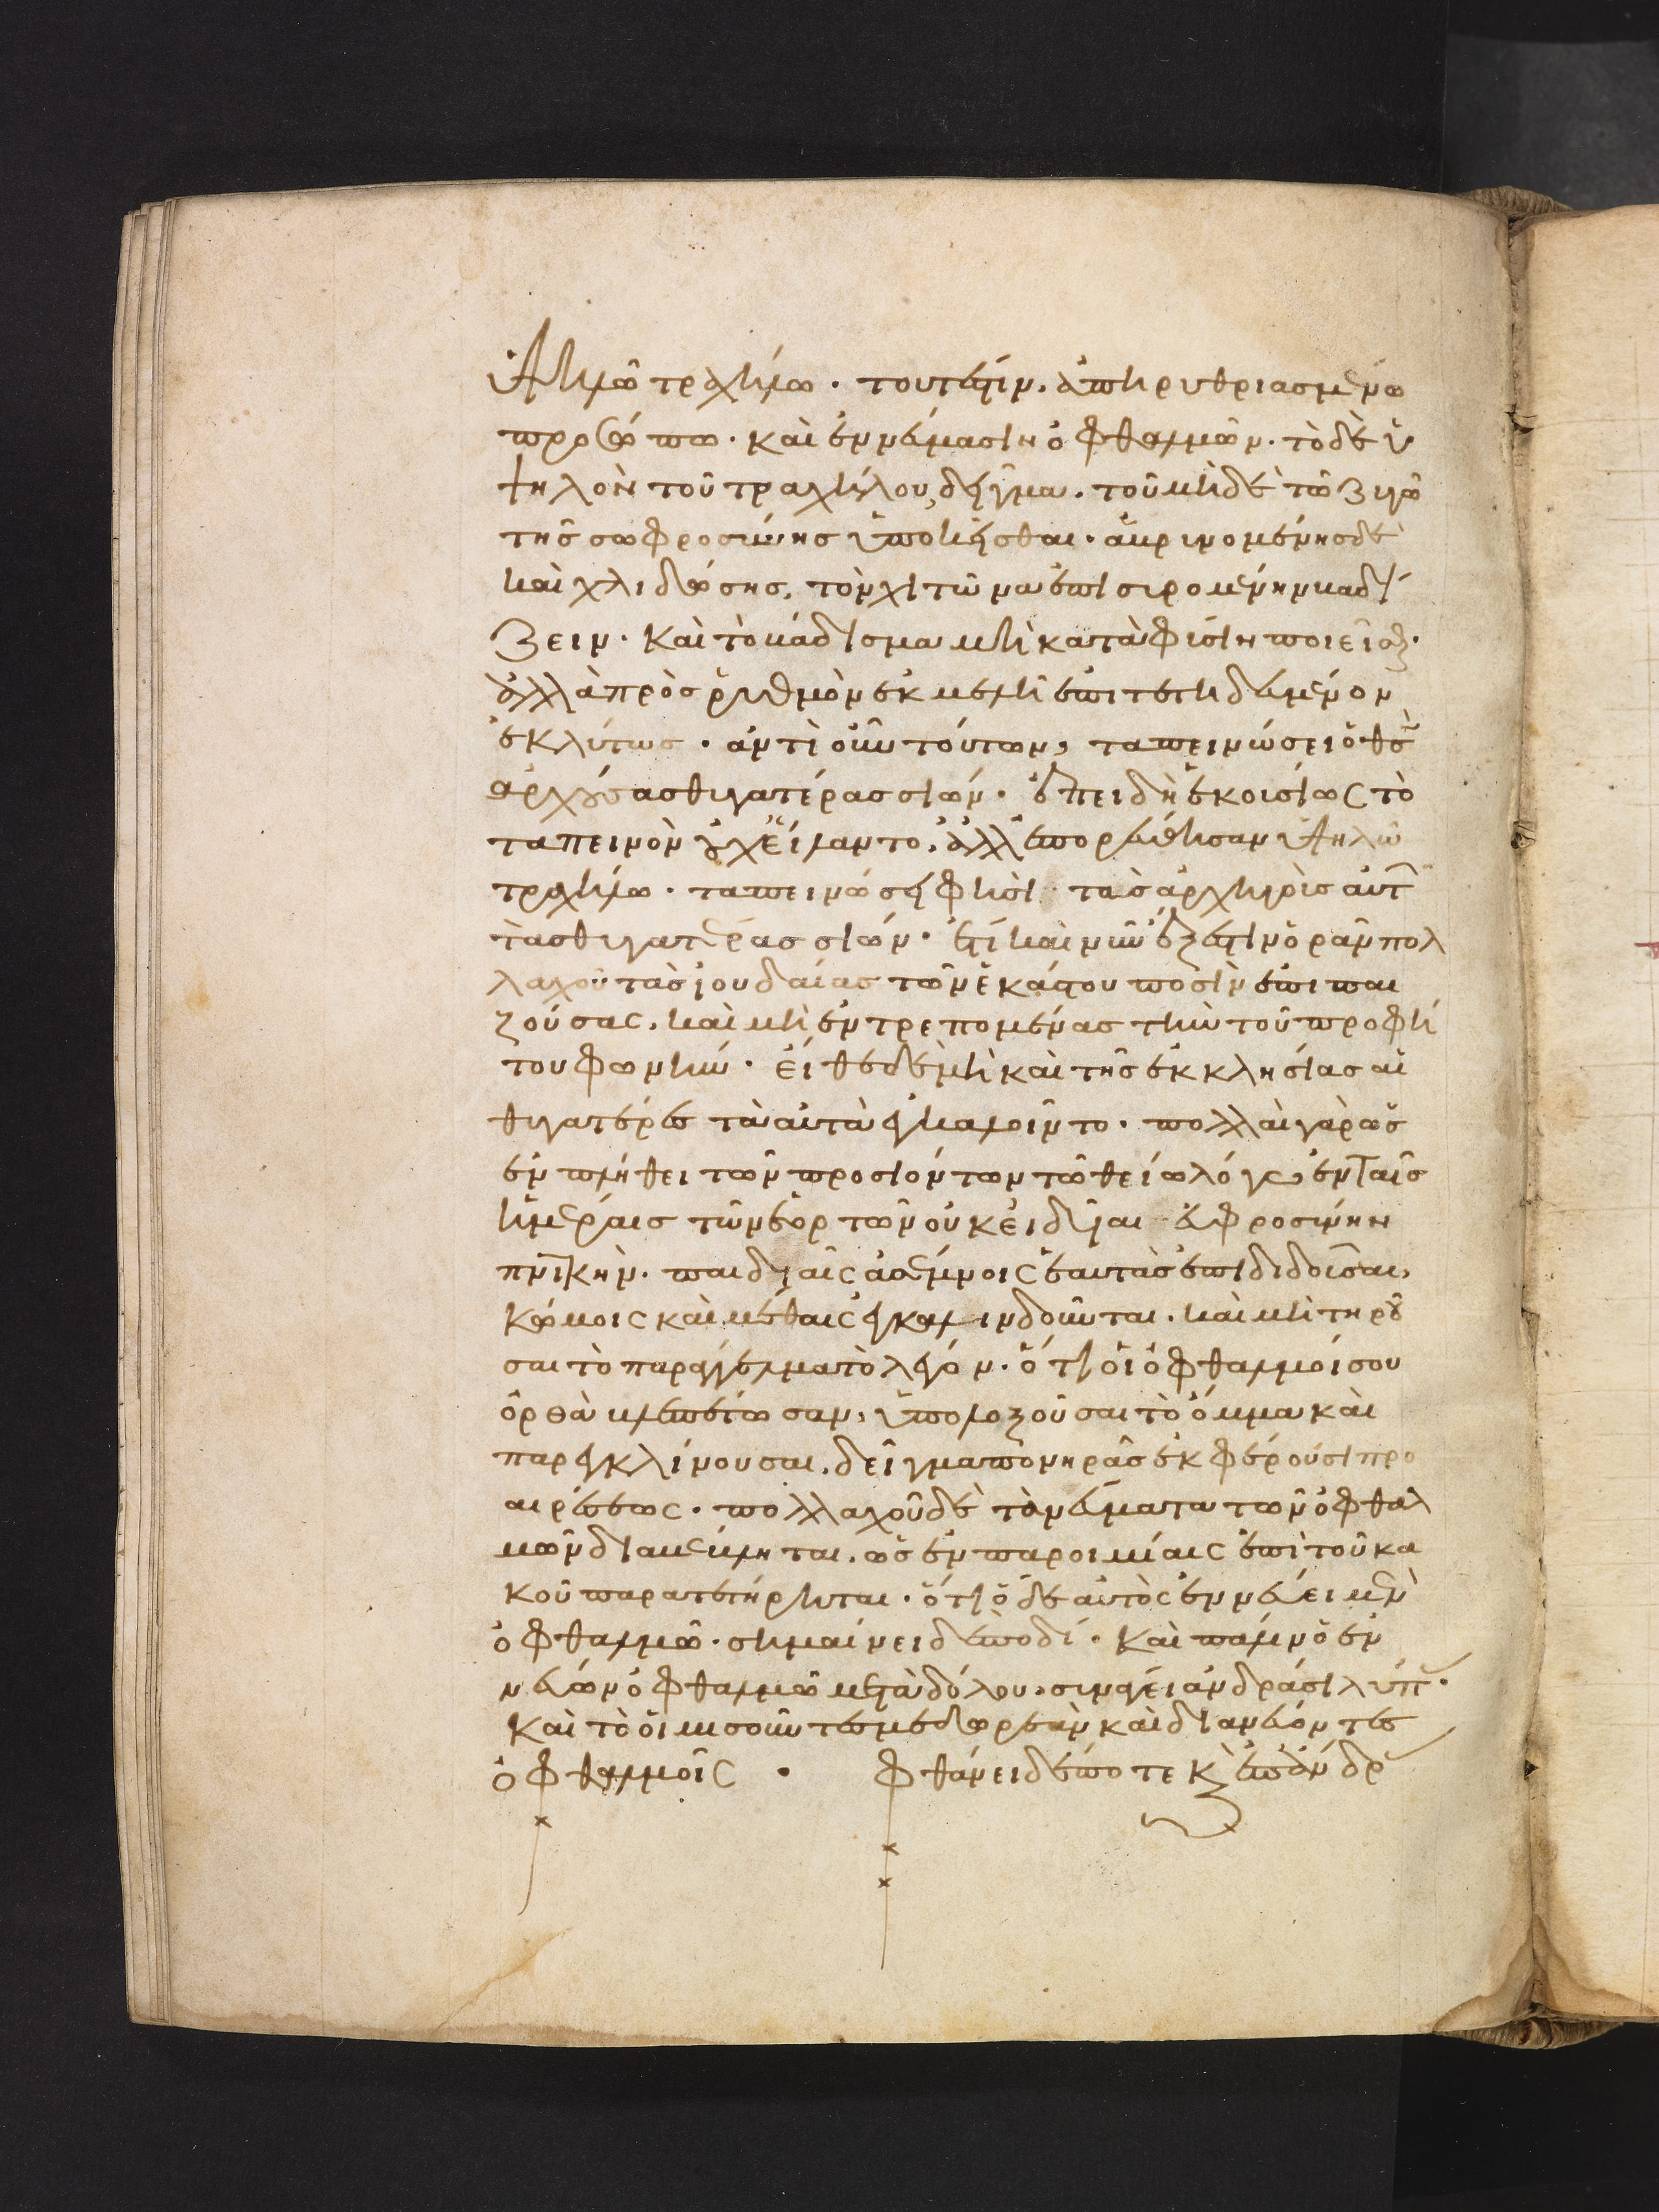 ψηλῶ τραχήλω. τουτέστιν, ἀπηρυθριασμένω
προσώπω. καὶ ἐν νεύμασιν ὀφθαλμῶν. τὸ δὲ ὑ
ψηλὸν τοῦ τραχήλου, δεῖγμα. τοῦ μηδὲ τῶ ζυγῶ
τῆς σωφροσύνης ὑποκεῖσθαι. ἁβρυνομένης δὲ
καὶ χλιδώσης, τὸν χιτῶνα ἐπισυρομένην βαδί
ζειν. καὶ τὸ βάδισμα μὴ κατὰ φύσιν ποιεῖσθαι.
ἀλλὰ πρὸς ῥυθμὸν ἐκμελῆ ἐπιτετηδευμένον
ἐκλύτως. ἀντὶ οὖν τούτων, ταπεινώσει ὁ θς
ἀρχούσας θυγατέρας σιών. ἐπειδὴ ἑκουσίως τὸ
ταπεινὸν οὐχ εἵλαντο, ἀλλ' ἐπορεύθησαν ὑψηλῶ
τραχήλω. ταπεινώσει φησὶ τὰς ἀρχηγοὺς αὐτ
τὰς θυγατέρας σιών. ἔτι καὶ νῦν ἔξεστιν ὁρᾶν πολ
λαχοῦ τὰς ἰουδαίας τῶν ἑκάστου ποσὶν ἐπιπαι
ζούσας, καὶ μὴ ἐντρεπομένας τὴν τοῦ προφή
του φωνήν. εἴθε δὲ μὴ καὶ τῆς ἐκκλησίας αἱ
θυγατέρες ταῦτα ἐγκαλοῖντο. πολλαὶ γὰρ ὡς
ἐν πλήθει τῶν προσιόντων τῶ θείω λόγω, ἐν ταῖς
ἡμέραις τῶν ἑορτῶν οὐκ εἰδυῖαι εὐφροσύνην
πνικὴν. παιδιαῖς ἀσέμνοις ἑαυτὰς ἐπιδιδοῦσαι,
κώμοις καὶ μέθαις ἐγκαλινδοῦνται. καὶ μὴ τηροῦ
σαι τὸ παράγγελμα τὸ λέγον. ὅτι οἱ ὀφθαλμοί σου
ὀρθὰ βλεπέτωσαν, ὑπολοξοῦσαι τὸ ὄμμα καὶ
παρεγκλίνουσαι, δεῖγμα πονηρᾶς ἐκφέρουσι προ
αιρέσεως. πολλαχοῦ δὲ τὰ νεύματα τῶν ὀφθαλ
μῶν διαβέβληται. ὡς ἐν παροιμίαις ἐπὶ τοῦ κα
κοῦ παρατετήρηται. ὅτι ὁ δὲ αὐτὸς ἐννεύει μὲν
ὀφθαλμῶ. σημαίνει δὲ ποδί. καὶ πάλιν ὁ ἐν
νεύων ὀφθαλμῶ μετὰ δόλου, συνάγει ἀνδράσι λύπ.
καὶ τὸ οἱ μισοῦντές με δωρεὰν καὶ διανεύοντες
ὀφθαλμοῖς. φθάνει δέ ποτε κ ἐπ' ἀνδρ